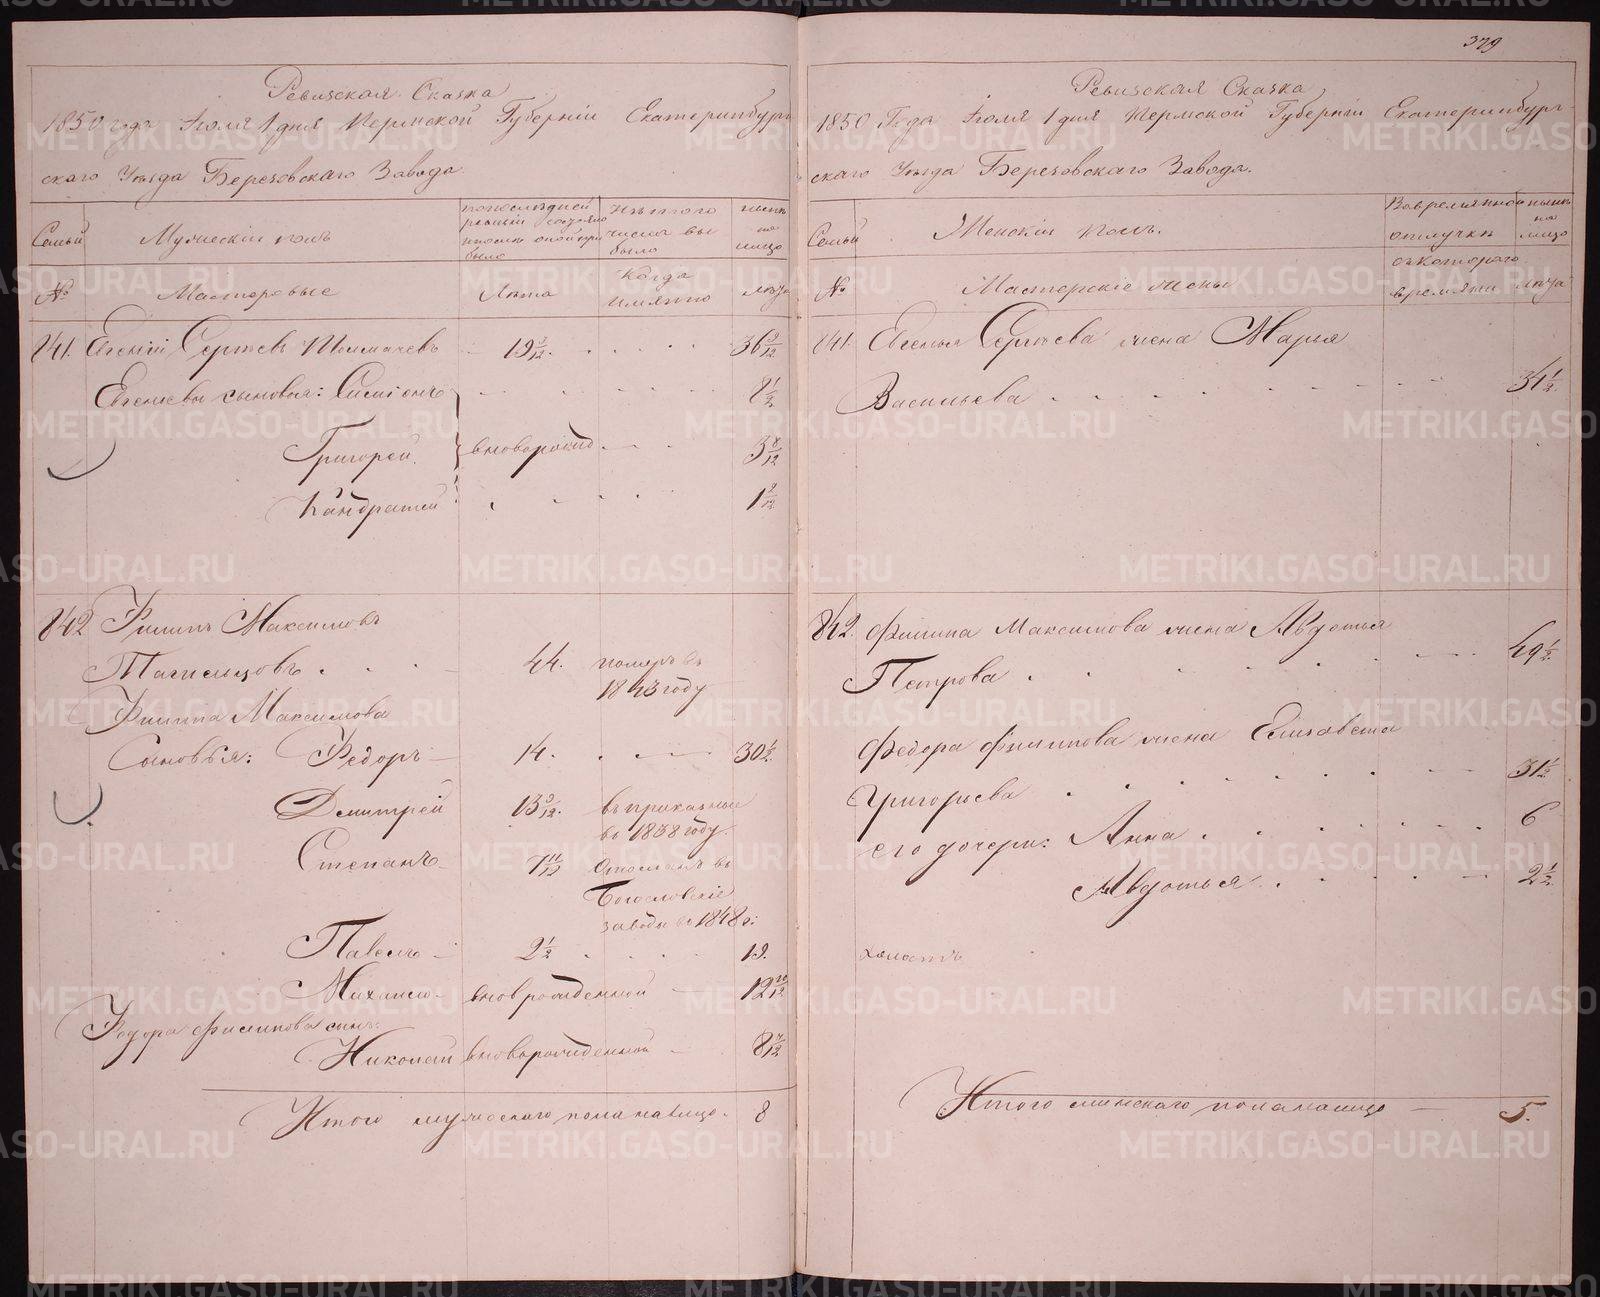 379
Ревизская Сказка
1850 года Июля 1 дня Пермской Губерніи Екатеринбург
скаго Уѣзда Березовскаго Завода.
Семьи
Мужескій полъ
по последней ревизіи состояло и после оной прибыло
Изъ того числа выбыло
ныне на лицо
№
Мастеровые
Лѣта
Когда имянно
лѣта
841. Евгеній Сергѣевъ Толмачевъ 19 9/12 36 9/12
Евгеніевы сыновья: Симіонъ 8 1/2
Григорей вновьрожд 3 8/12
Кандратей 1 2/12
842 Филипъ Максимовъ
Тагильцовъ 44. померъ въ
1843 году
Филипа Максимова
Сыновья: Федоръ 14. 30 1/2
Дмитрей 13 9/12. въ приказные
въ 1838 году.
Степанъ 7 11/12 Отосланъ въ
Богословскіе
заводы въ 1848 г:
Павелъ 2 1/2 19.
Михайло вноврожденной 12 10/12
Федора Филипова сынъ:
Николай вноворожденной 8 7/12
Итого мужескаго пола налицо. 8
Ревизская Сказка
1850 Года Июля 1 дня Пермской Губерніи Екатеринбург
скаго Уѣзда Березовскаго Завода.
Семьи
Женскій полъ.
Вовременной отлучки
ныне на лицо
№
Мастерскіе жены
съ котораго времяни
лѣта
841 Евгенья Сергѣева жена Марья
Васильева 34 1/2.
842. Филипа Максимова жена Авдотья
Петрова 49 1/2.
Федора Филипова жена Елизавета
Григорьева 31 1/2
его дочери: Анна 6
Авдотья 2 1/2.
холостъ
Итого женскаго пола налицо 5.
METRIKI.GASO-URAL.RU